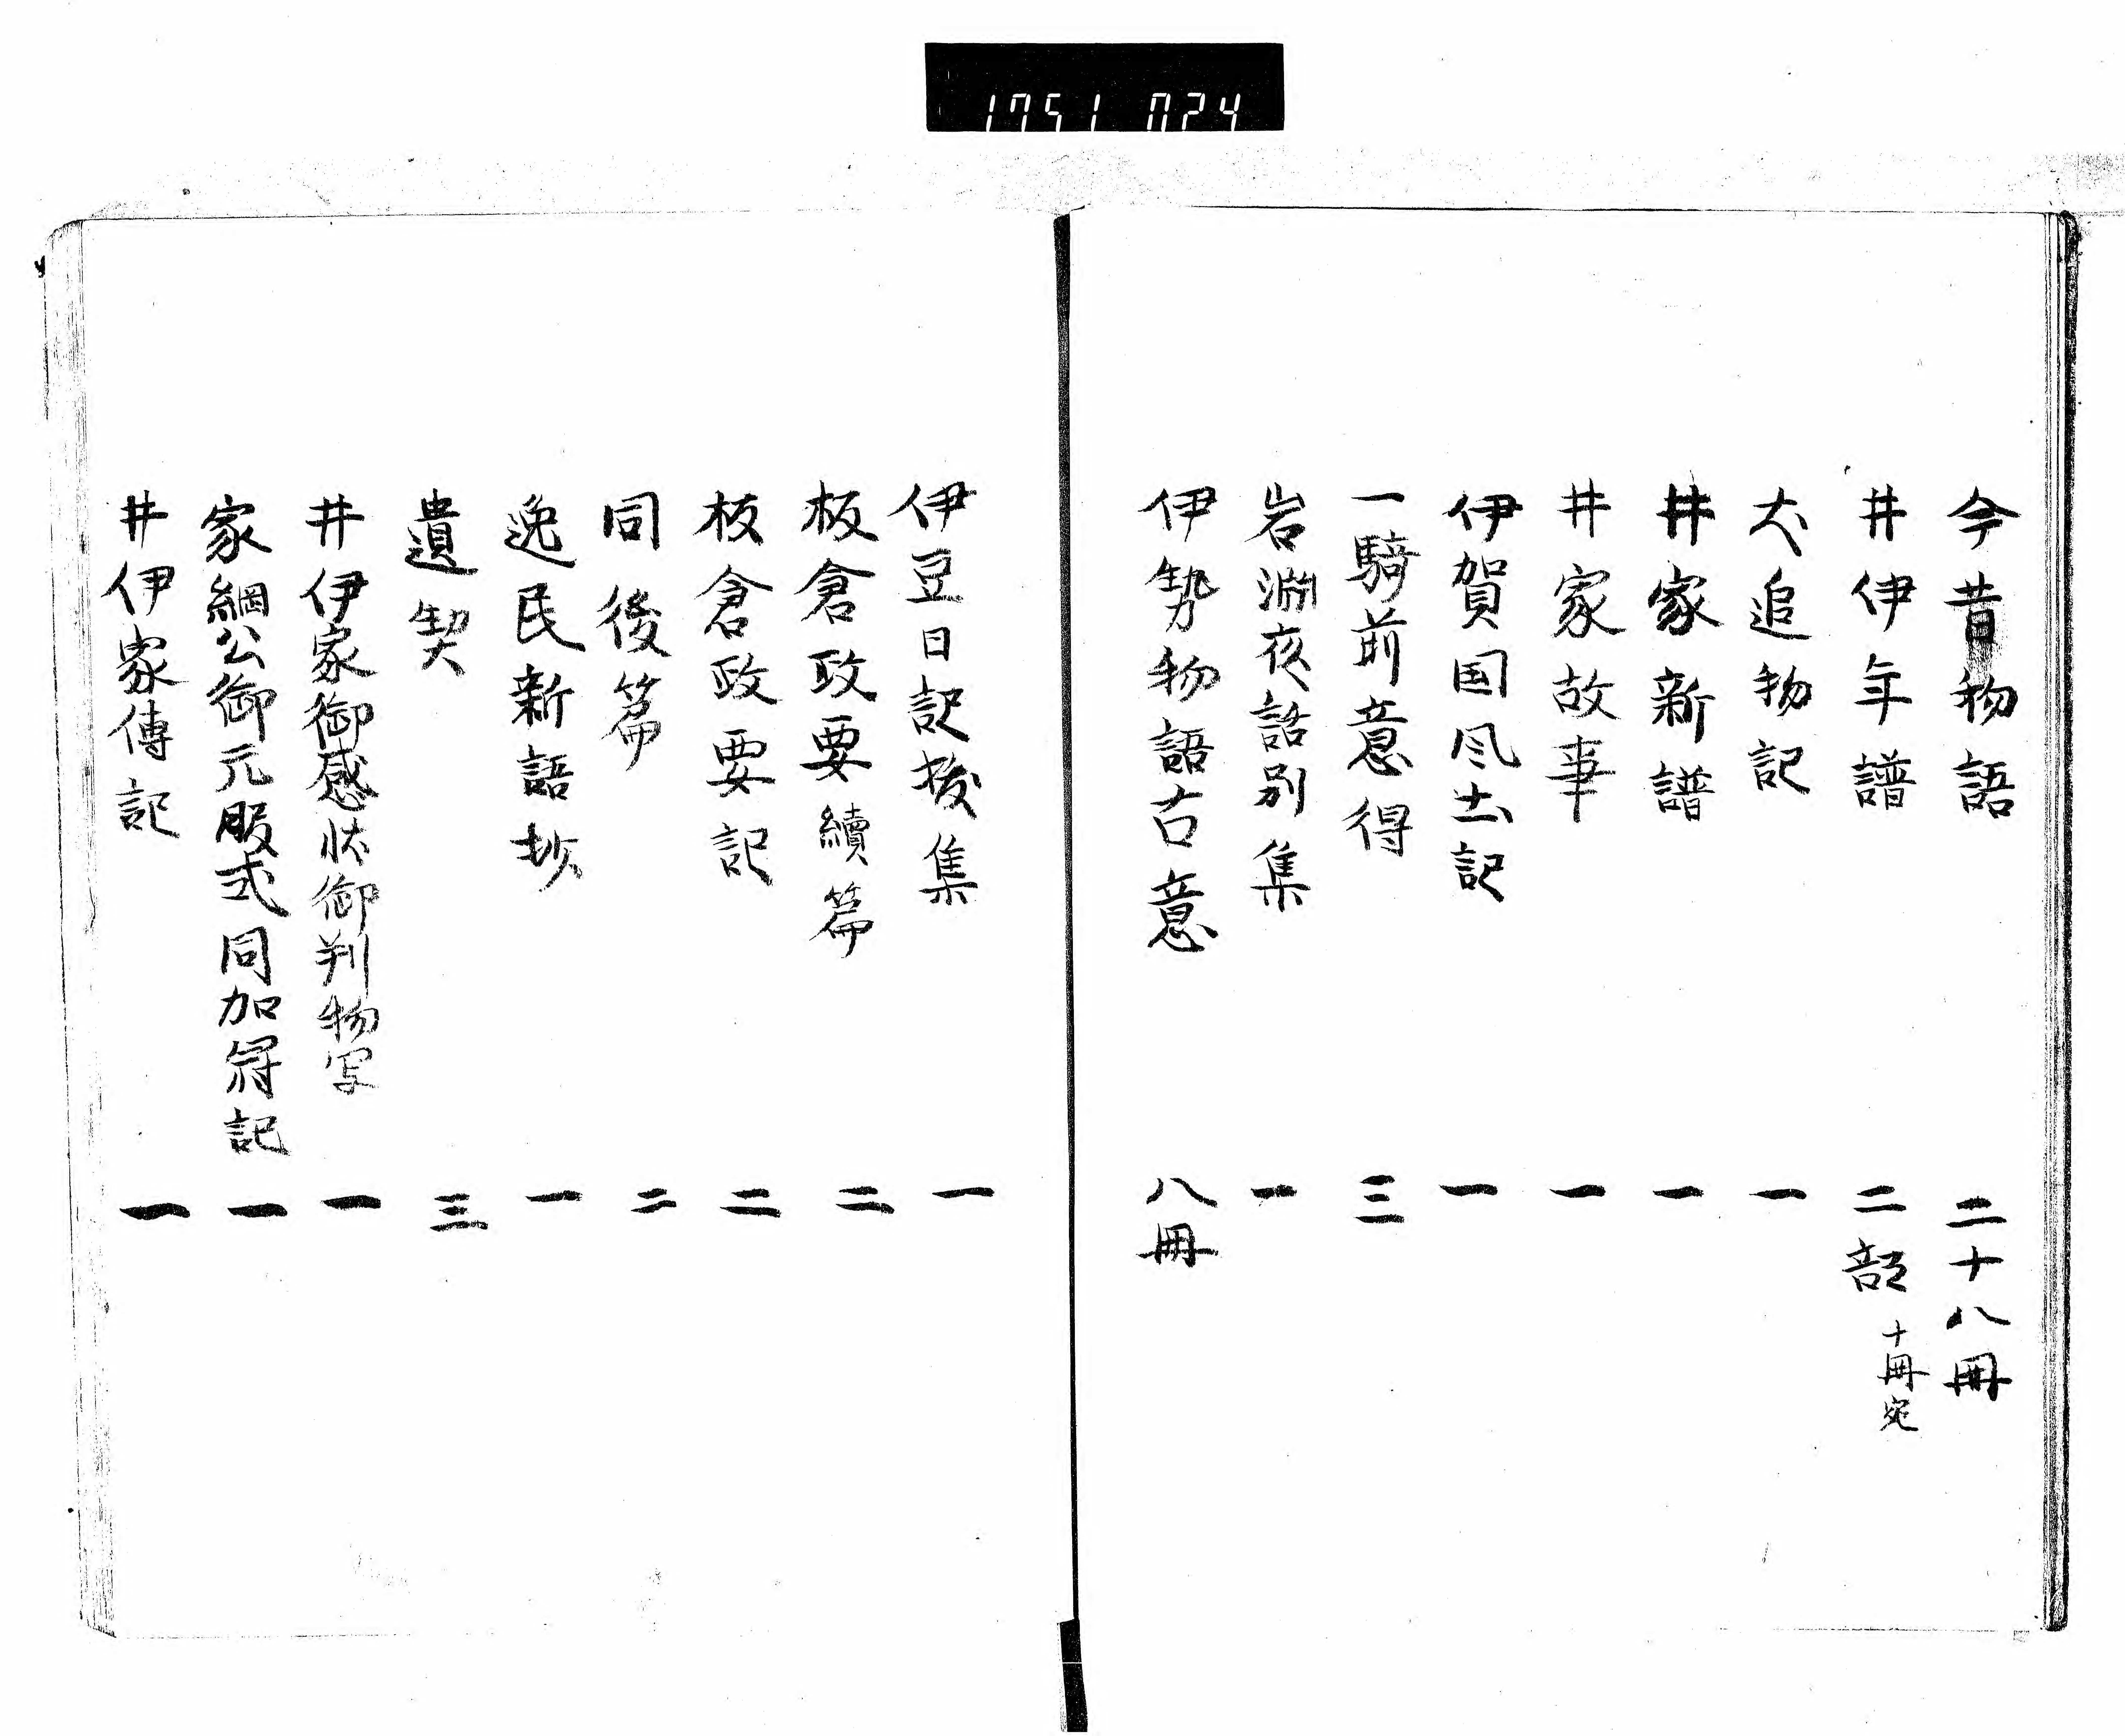 1751 024
今昔物語 二十八冊
井伊年譜 二部 十冊宛
犬追物記 一
井家新譜 一
井家故事 一
伊賀国风土記 一
一騎前意得 三
岩淵夜話別集 一
伊勢物語古意 八冊
伊豆日記抜集 一
板倉政要續篇 二
板倉政要記 二
同後篇 二
逸民新語抄 一
遺契 三
井伊家御感状御判物写 一
家綱公御元服式同加冠記 一
井伊家傳記 一